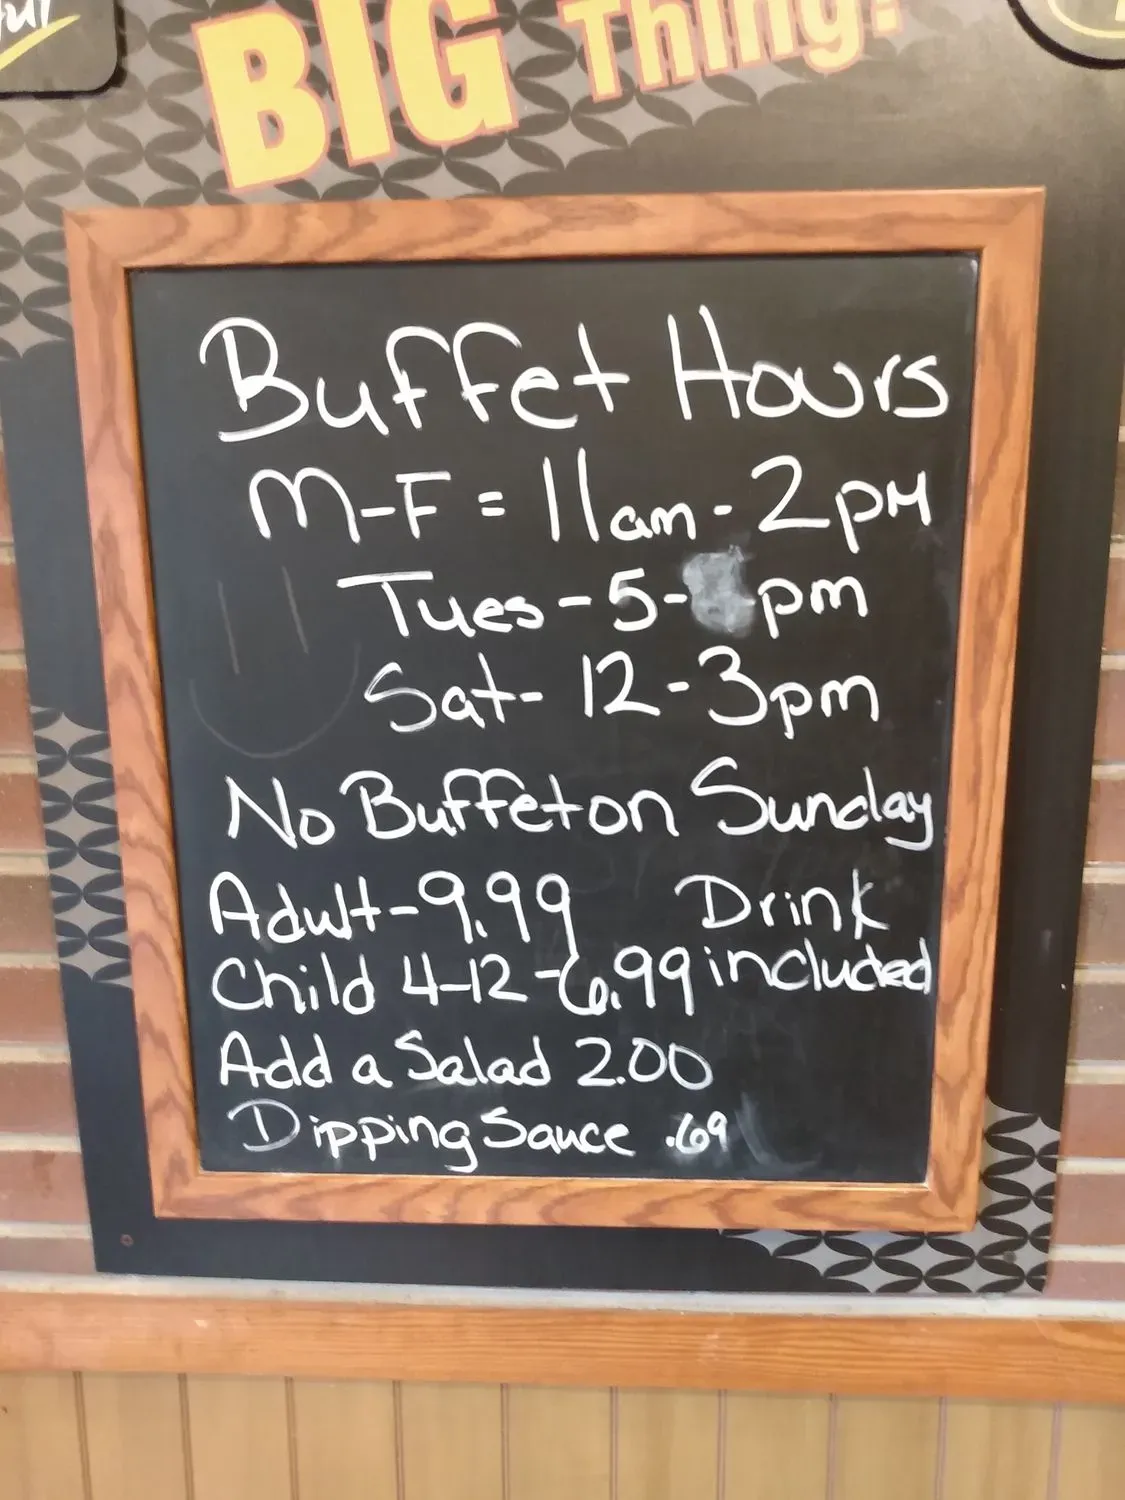 BIG Thing!
Buffet Hours
M-F = 11am - 2pm
Tues - 5- pm
Sat- 12-3pm
No Buffet on Sunday
Adult-9.99 Drink
Child 4-12-6.99 included
Add a Salad 2.00
Dipping Sauce .69